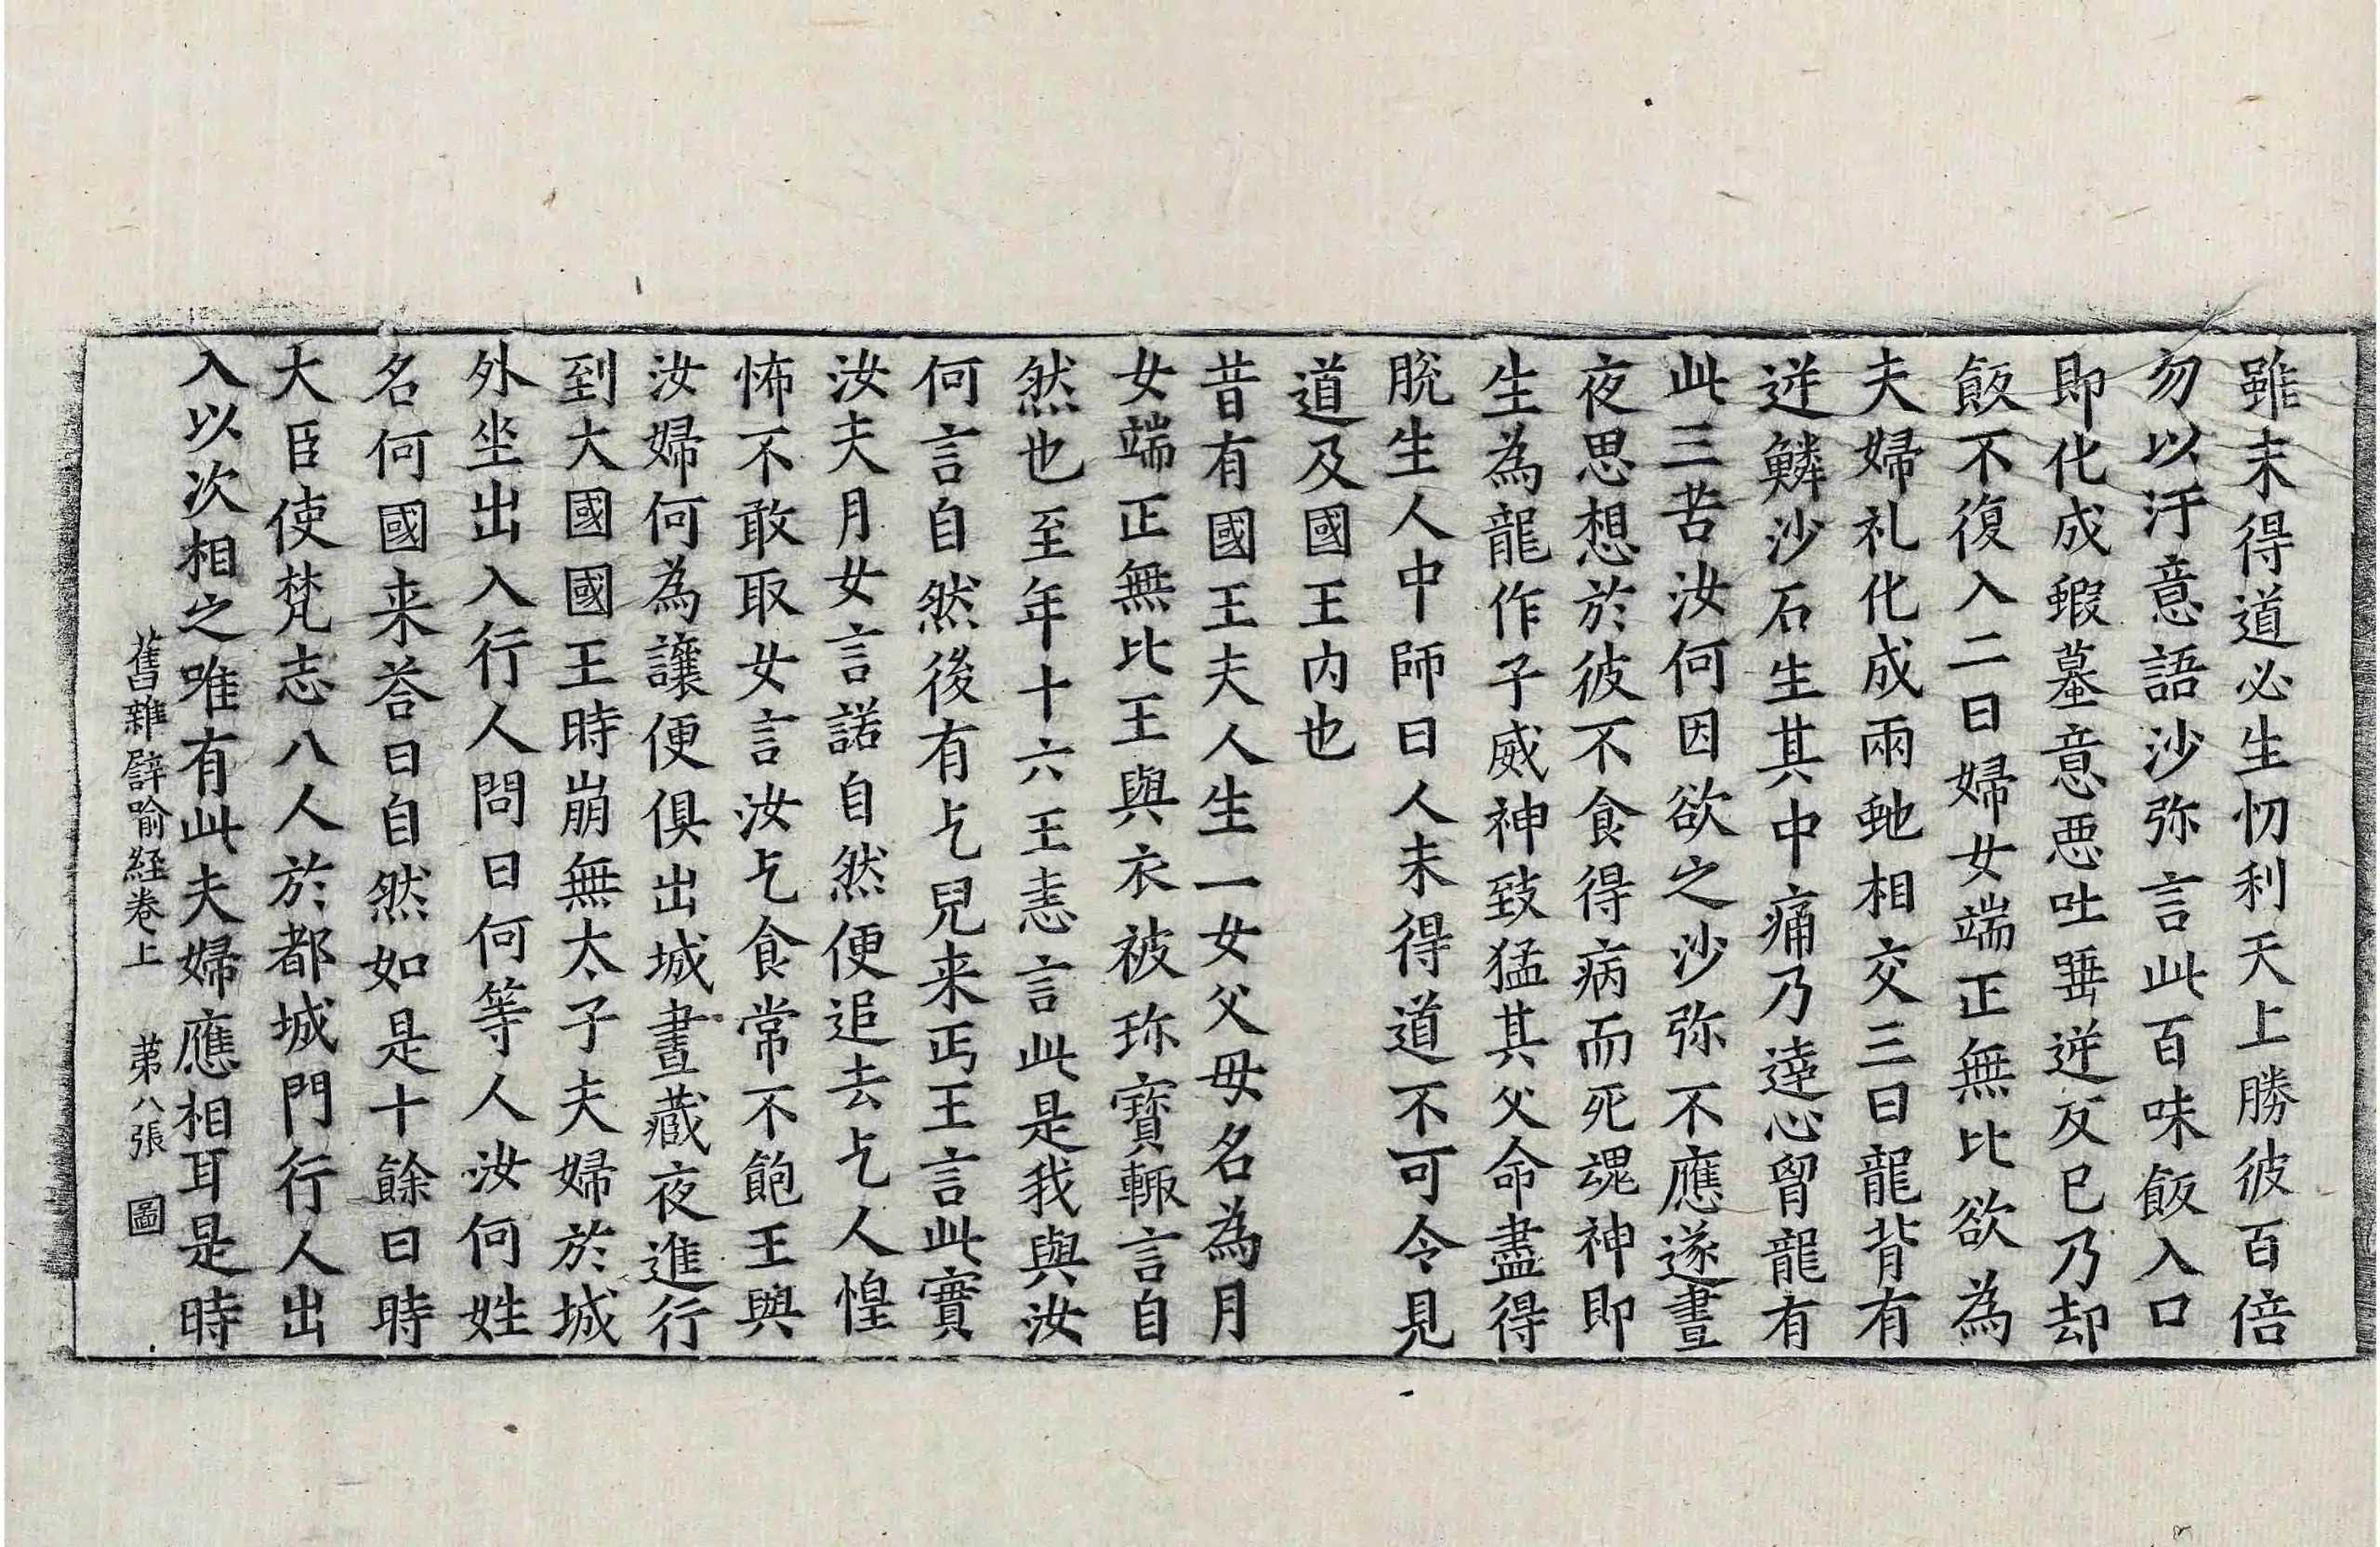 雖未得道必生忉利天上勝彼百倍
勿以汙意語沙弥言此百味飯入口
即化成蝦蟇意惡吐唾逆反已乃却
飯不復入二曰婦女端正無比欲為
夫婦礼化成兩虵相交三曰龍背有
逆鱗沙石生其中痛乃達心胷龍有
此三苦汝何因欲之沙弥不應遂晝
夜思想於彼不食得病而死魂神即
生為龍作子威神致猛其父命盡得
脫生人中師曰人未得道不可令見
道及國王内也
昔有國王夫人生一女父母名為月
女端正無比王與衣被珎寶輙言自
然也至年十六王恚言此是我與汝
何言自然後有乞兒来丐王言此實
汝夫月女言諾自然便追去乞人惶
怖不敢取女言汝乞食常不飽王與
汝婦何為讓便俱出城晝藏夜進行
到大國國王時崩無太子夫婦於城
外坐出入行人問曰何等人汝何姓
名何國来荅曰自然如是十餘日時
大臣使梵志八人於都城門行人出
入以次相之唯有此夫婦應相耳是時
舊雜譬喻経卷上 苐八張 圖